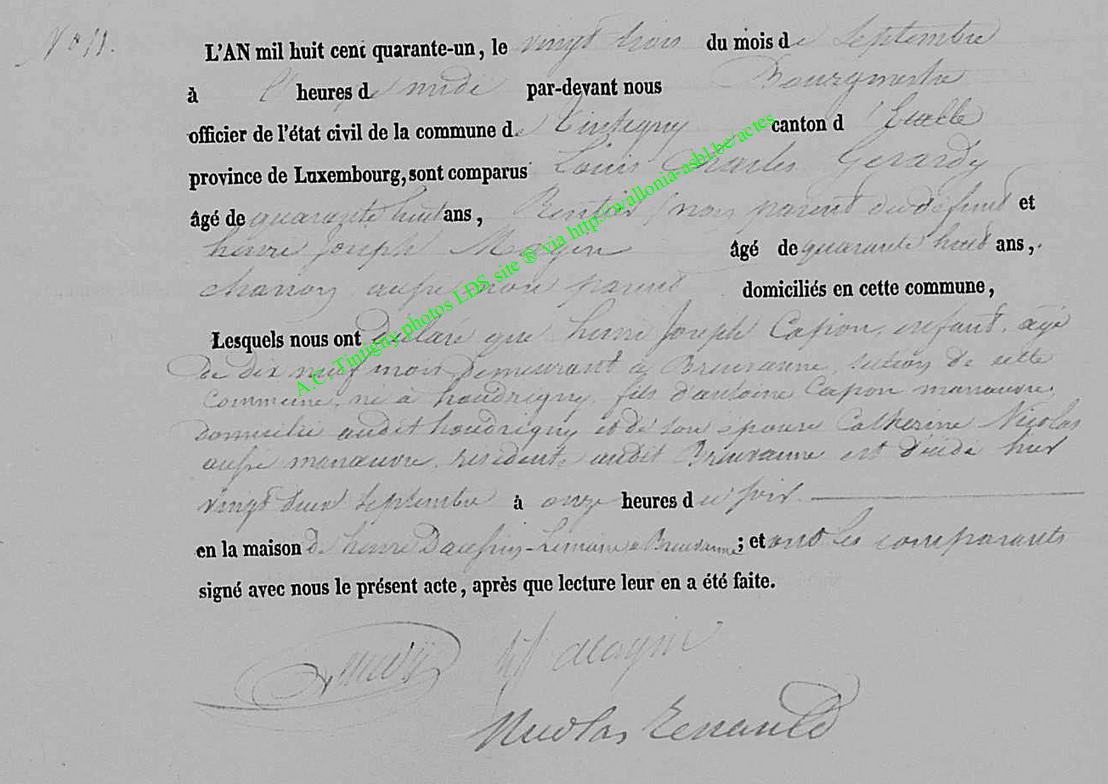 N° 11.
L'AN mil huit cent quarante-un, le vingt trois du mois de Septembre
à heures de midi par-devant nous Bourgmestre
officier de l'état civil de la commune de Tintigny canton d'Etalle
province de Luxembourg, sont comparus Louis Charles Gerardy
âgé de quarante huit ans, Rentier, non parent du défunt et
henri Joseph âgé de quarante huit ans,
charron aussi non parent domiciliés en cette commune,
Lesquels nous ont déclaré que henri Joseph Capion, enfant, agé
de dix neuf mois demeurant à Breuvanne, section de cette
commune, né à houdrigny, fils d'antoine Capion manœuvre,
domicilié audit houdrigny et de son epouse Catherine Nicolas
aussi manœuvre, résidente audit Breuvanne est décédé hier
vingt deux septembre à onze heures du soir.
en la maison de henri à Breuvanne; et ont les comparants
signé avec nous le présent acte, après que lecture leur en a été faite.
Nicolas Renauld
A.C. Tintigny photos LDS, site ® via http://wallonia-asbl.be/actes